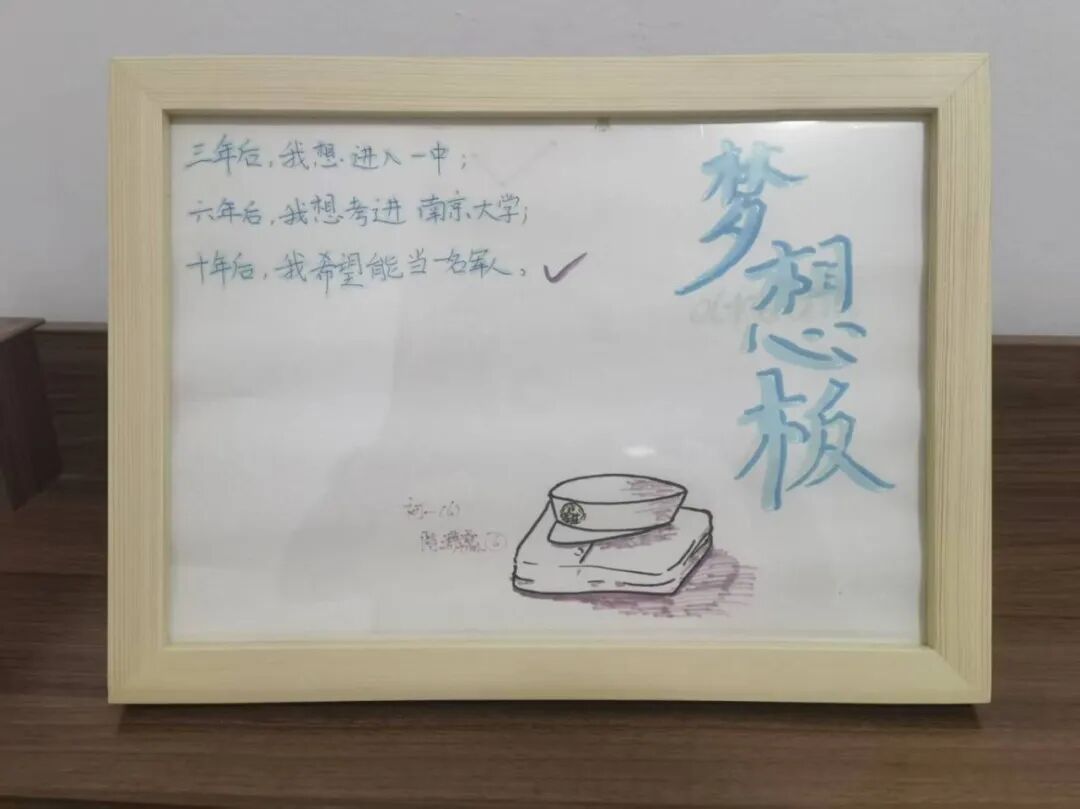 三年后，我想进入一中；
六年后，我想考进南京大学；
十年后，我希望能当一名军人。
梦想板
初一(6)